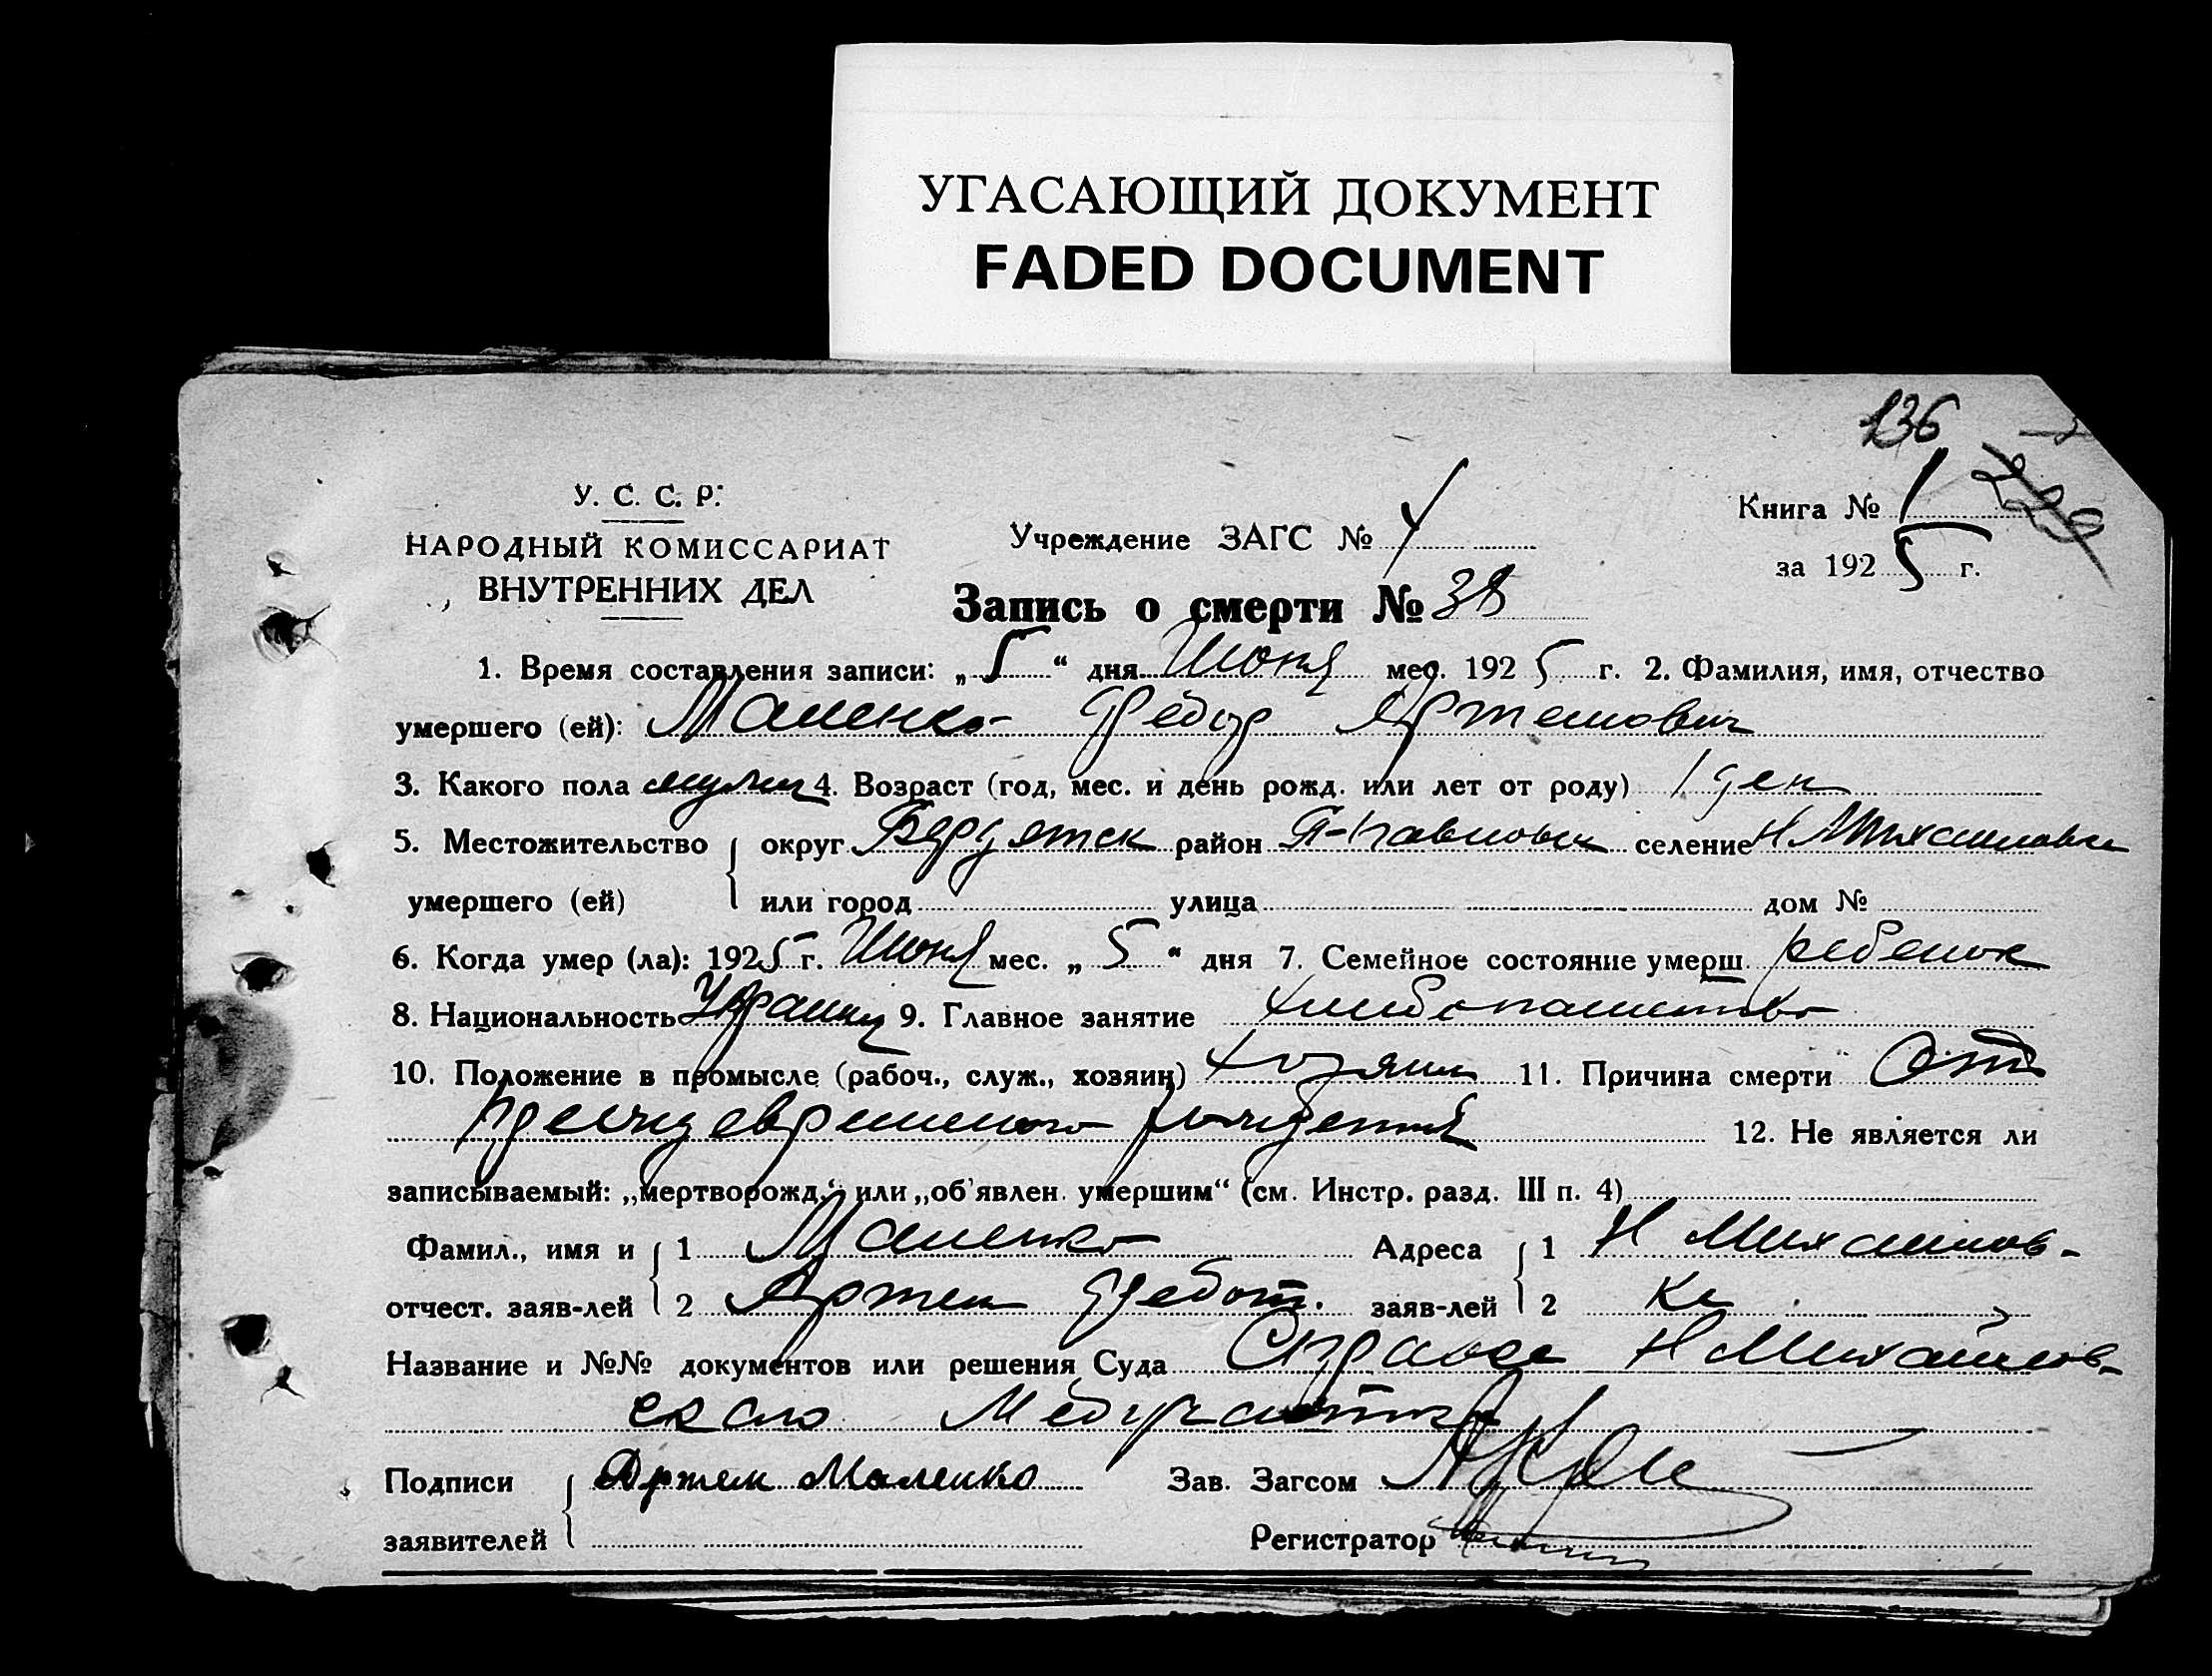 УГАСАЮЩИЙ ДОКУМЕНТ
FADED DOCUMENT
136
У. С. С. Р.
НАРОДНЫЙ КОМИССАРИАТ
ВНУТРЕННИХ ДЕЛ
Учреждение ЗАГС №
Книга № 1
за 1925 г.
Запись о смерти № 38
1. Время составления записи: „5“ дня Июня мес. 1925 г. 2. Фамилия, имя, отчество
умершего (ей): Маленко Федор Артемович
3. Какого пола мужск 4. Возраст (год, мес. и день рожд. или лет от роду) 1 ден
5. Местожительство округ Бердянск район П-павловск селение Н Михайловка
умершего (ей) или город улица дом №
6. Когда умер (ла): 1925 г. Июня мес. „5“ дня 7. Семейное состояние умерш. ребенок
8. Национальность Украинец 9. Главное занятие хлебопашество
10. Положение в промысле (рабоч., служ., хозяин) хозяин 11. Причина смерти От
преждевременного рождения
12. Не является ли
записываемый: „мертворожд.“ или „об'явлен. умершим“ (см. Инстр. разд. III п. 4)
Фамил., имя и 1 Маленко Адреса 1 Н Михайлов-
отчест. заяв-лей 2 Артем Федот. заяв-лей 2 ка
Название и №№ документов или решения Суда Справка Н Михайлов-
ского Медучастка
Подписи Артем Маленко Зав. Загсом
заявителей Регистратор